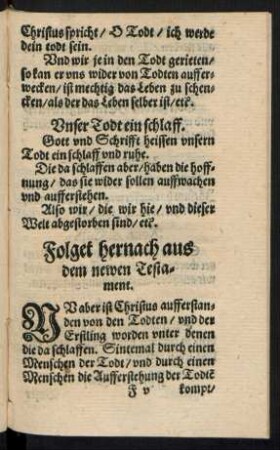 Christus spricht/ O Todt/ ich werde
dein todt sein.
Vnd wir je in den Todt gerieten/
so kan er vns wider von Todten auffer-
wecken/ ist mechtig das Leben zu schen-
cken/ als der das Leben selber ist/ etc.
Vnser Todt ein schlaff.
Gott vnd Schrifft heissen vnsern
Todt ein schlaff vnd ruhe.
Die da schlaffen aber/ haben die hoff-
nung/ das sie wider sollen auffwachen
vnd aufferstehen.
Also wir/ die wir hie/ vnd dieser
Welt abgestorben sind/ etc.
Folget hernach aus
dem newen Testa-
ment.
NV aber ist Christus aufferstan-
den von den Todten/ vnd der
Erstling worden vnter denen
die da schlaffen. Sintemal durch einen
Menschen der Todt/ vnd durch einen
Menschen die Aufferstehung der Todtē
F v kompt/